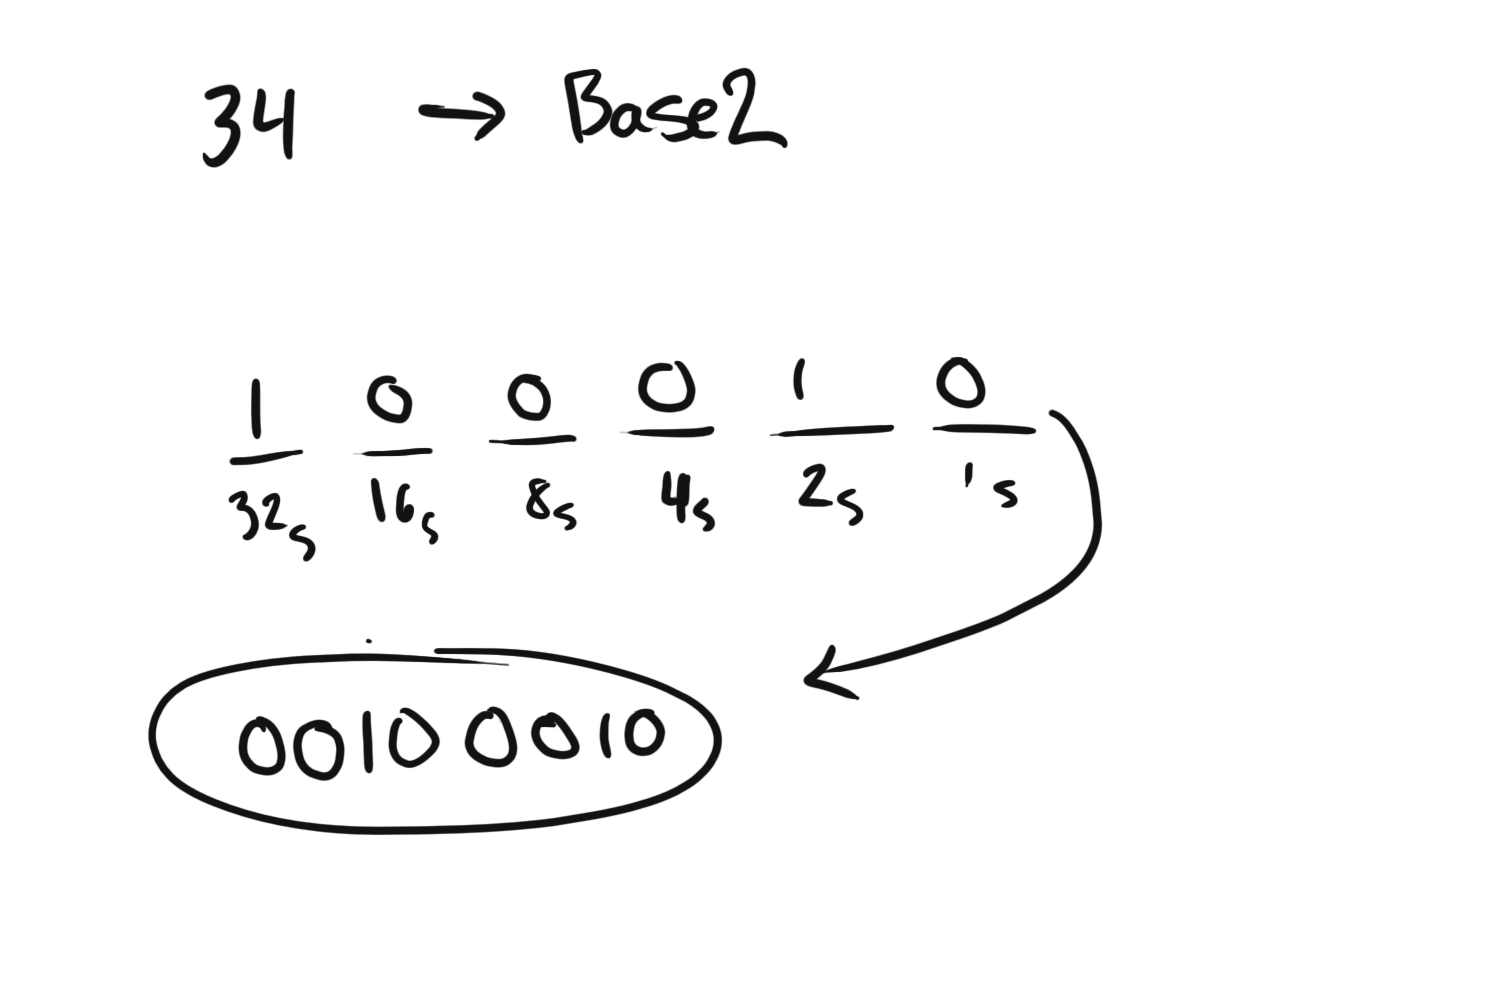 34 → Base2
1 0 0 0 1 0
32s 16s 8s 4s 2s 1s
00100010